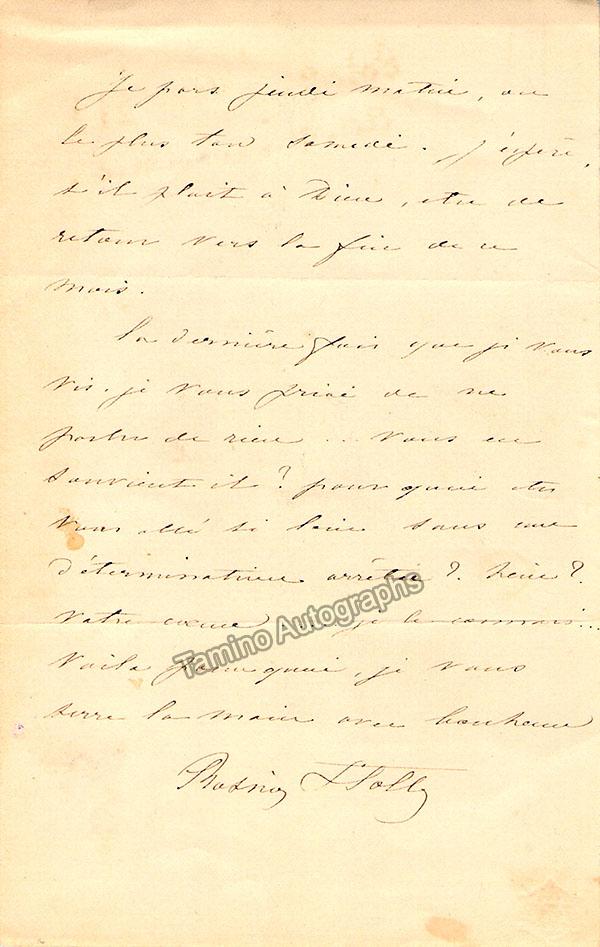 Je pars jeudi matin, ou
le plus tard samedi. J'espère,
s'il plait à Dieu, etre de
retour vers la fin de ce
mois.
la dernière fois que je vous
vis. je vous priai de ne
parler de rien ... vous en
souvient il? pourquoi etes
vous allé si loin sans une
détermination arrêtée? hein?
votre coeur .... je le connais...
Voila pourquoi, je vous
serre la main avec bonheur
Rosine Stoltz
Tamino Autographs